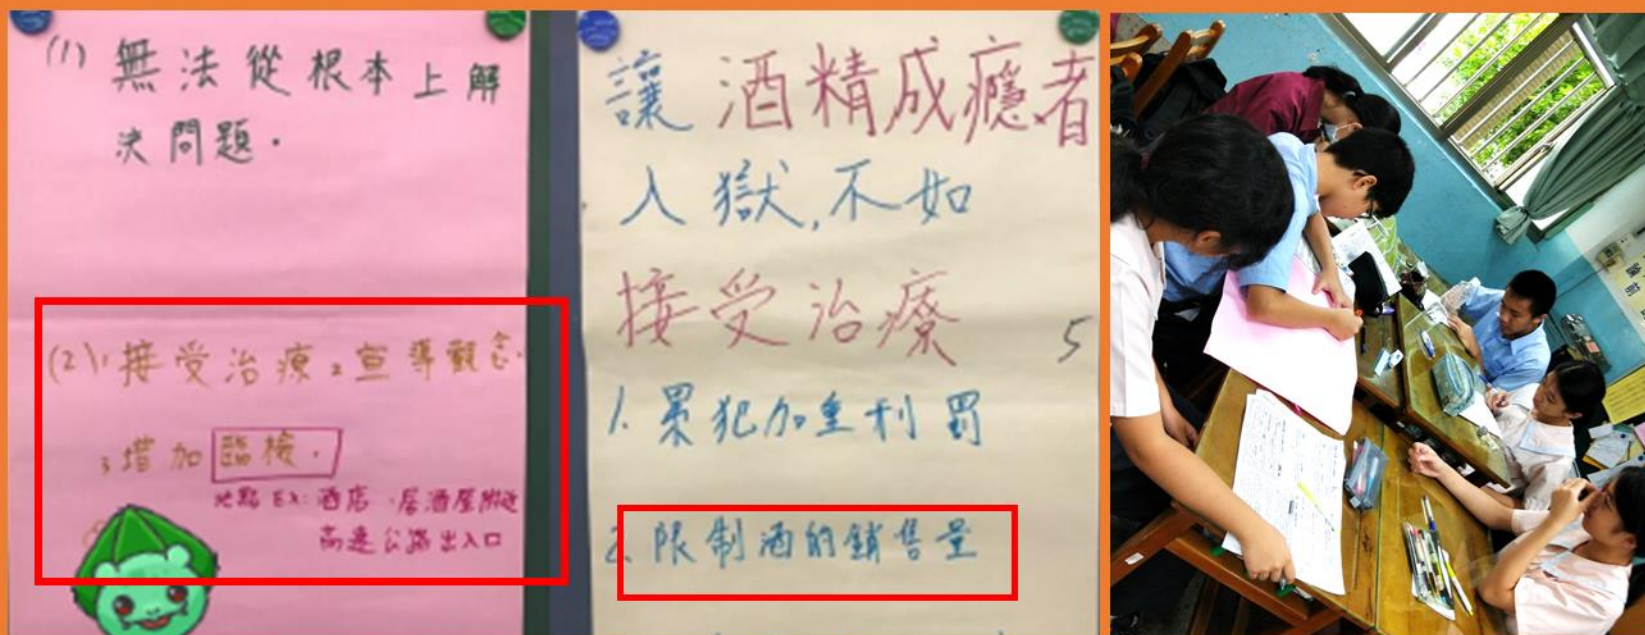 (1) 無法從根本上解
決問題.
(2)1.接受治療2.宣導觀念.
3.增加臨檢.
地點 Ex:酒店.居酒屋附近
高速公路出入口
讓酒精成癮者
入獄,不如
接受治療
5
1.累犯加重刑罰
2.限制酒的銷售量